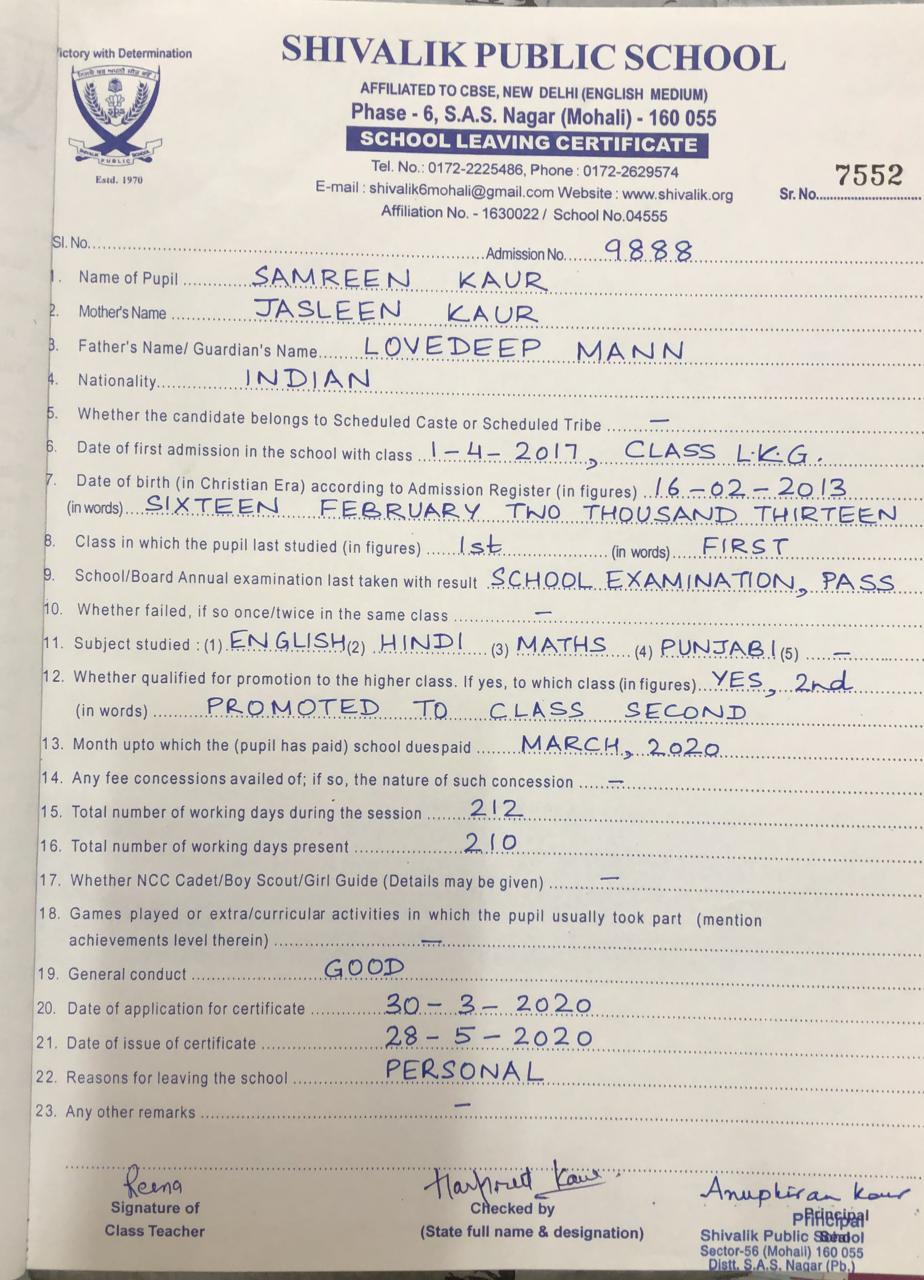 ictory with Determination
SHIVALIK PUBLIC SCHOOL
AFFILIATED TO CBSE, NEW DELHI (ENGLISH MEDIUM)
Phase - 6, S.A.S. Nagar (Mohali) - 160 055
SCHOOL LEAVING CERTIFICATE
SHIVALIK PUBLIC SCHOOL
Estd. 1970
Tel. No.: 0172-2225486, Phone : 0172-2629574
E-mail : shivalik6mohali@gmail.com Website : www.shivalik.org
Affiliation No. - 1630022 / School No.04555
Sr. No. 7552
Sl. No. Admission No. 9888
1. Name of Pupil SAMREEN KAUR
2. Mother's Name JASLEEN KAUR
3. Father's Name/ Guardian's Name LOVEDEEP MANN
4. Nationality INDIAN
5. Whether the candidate belongs to Scheduled Caste or Scheduled Tribe —
6. Date of first admission in the school with class 1-4-2017, CLASS L.K.G.
7. Date of birth (in Christian Era) according to Admission Register (in figures) 16-02-2013
(in words) SIXTEEN FEBRUARY TWO THOUSAND THIRTEEN
8. Class in which the pupil last studied (in figures) 1st (in words) FIRST
9. School/Board Annual examination last taken with result SCHOOL EXAMINATION, PASS
10. Whether failed, if so once/twice in the same class —
11. Subject studied : (1) ENGLISH (2) HINDI (3) MATHS (4) PUNJABI (5) —
12. Whether qualified for promotion to the higher class. If yes, to which class (in figures) YES, 2nd
(in words) PROMOTED TO CLASS SECOND
13. Month upto which the (pupil has paid) school duespaid MARCH, 2020
14. Any fee concessions availed of; if so, the nature of such concession —
15. Total number of working days during the session 212
16. Total number of working days present 210
17. Whether NCC Cadet/Boy Scout/Girl Guide (Details may be given) —
18. Games played or extra/curricular activities in which the pupil usually took part (mention
achievements level therein) —
19. General conduct GOOD
20. Date of application for certificate 30-3-2020
21. Date of issue of certificate 28-5-2020
22. Reasons for leaving the school PERSONAL
23. Any other remarks —
Reena
Signature of
Class Teacher
Harpreet Kaur
Checked by
(State full name & designation)
Anupkiran Kaur
Principal
Shivalik Public School
Sector-56 (Mohali) 160 055
Distt. S.A.S. Nagar (Pb.)